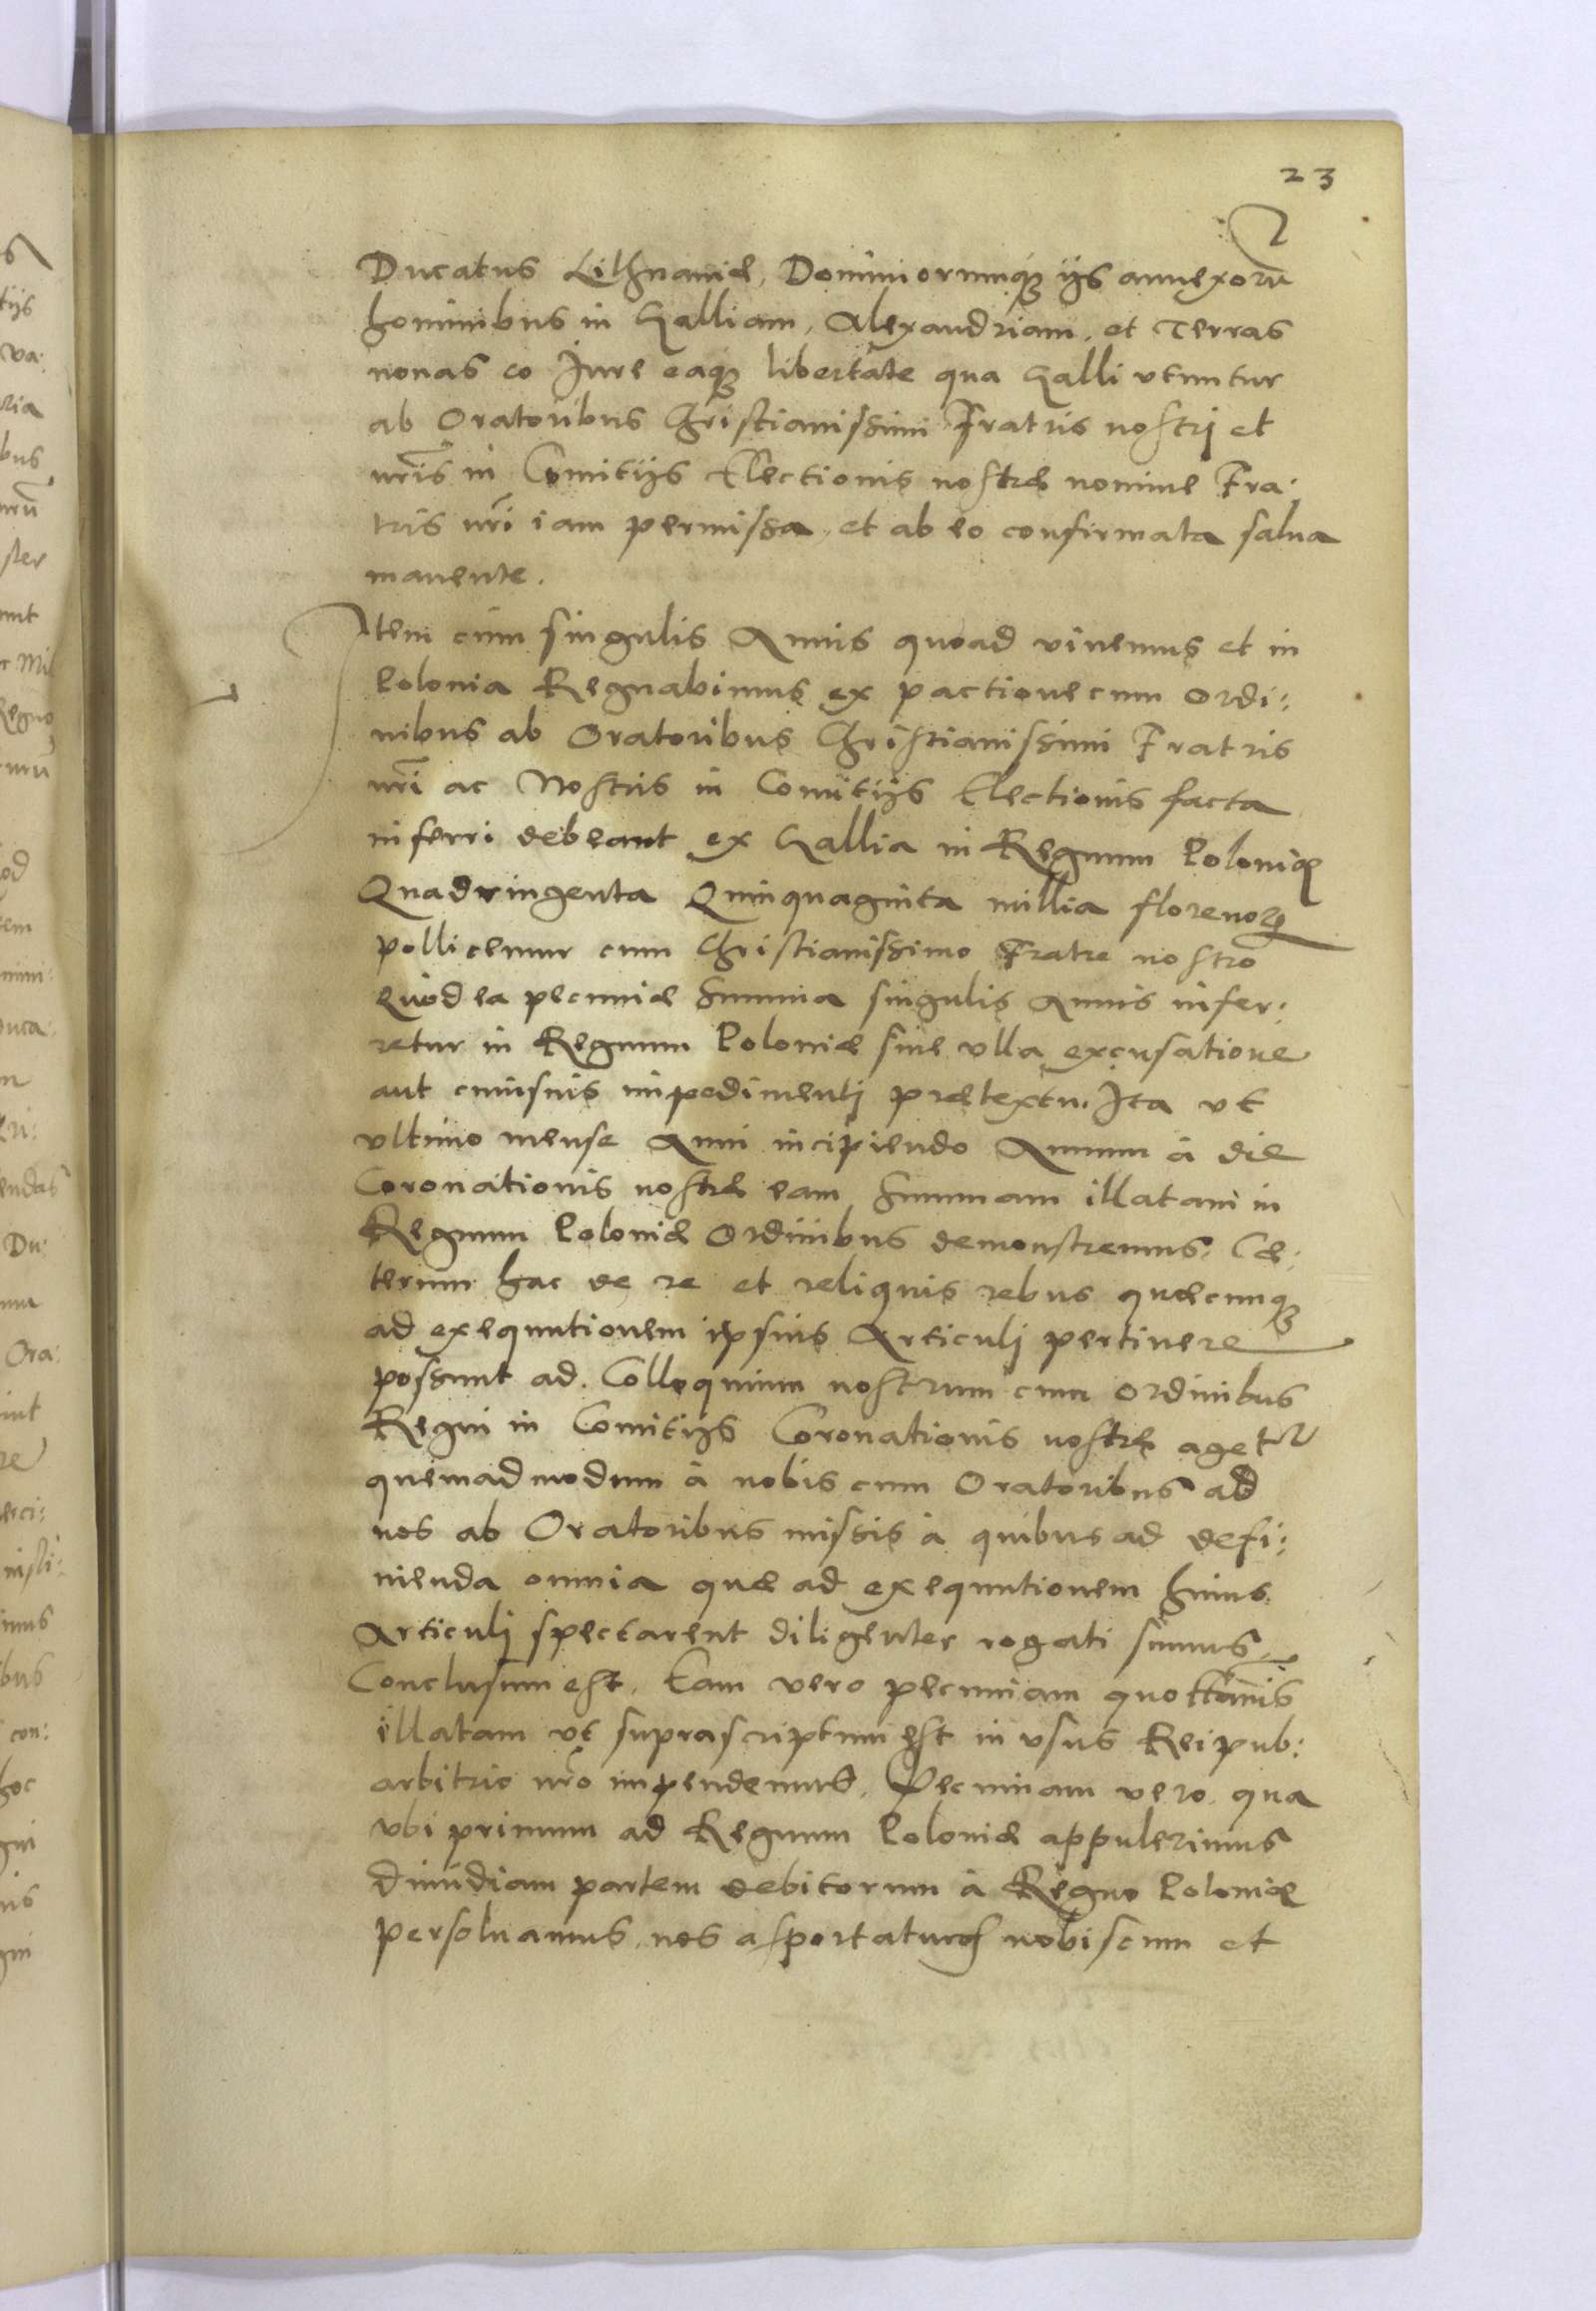 23
Ducatus Lithuaniæ, Dominiorumq́ꝫ ijs annexorū
hominibus in Galliam, Alexandriam, et Terras
nouas eo Jure eaqꝫ libertate qua Galli vtuntur
ab Oratoribus Christianissimi Fratris nostrj et
nr̃is in Comitijs Electionis nostræ nomine Fra:
tris nr̃i iam permissa, et ab eo confirmata salua
manente.
Item cùm singulis Annis quoad viuemus et in
Polonia Regnabimus ex pactione cum Ordi:
nibus ab Oratoribus Christianissimi Fratris
nr̃i ac Nostris in Comitijs Electionis facta
inferri debeant ex Gallia in Regnum Poloniæ
Quadringenta Quinquaginta millia florenoꝝ
pollicemur cum Christianissimo Fratre nostro
Quòd ea pecuniæ Summa singulis Annis infer:
retur in Regnum Poloniæ sine vlla excusatione
aut cuiusuis impedimentj prætextu. Ita vt
vltimo mense Anni incipiendo Annum à die
Coronationis nostræ eam Summam illatam in
Regnum Poloniæ Ordinibus demonstremus. Cæ:
terum hac de re et reliquis rebus quæcunqꝫ
ad exequutionem ipsius Articulj pertinere
possunt ad Colloquium nostrum cum Ordinibus
Regni in Comitijs Coronationis nostræ agetur
quemadmodum à nobis cum Oratoribus ad
nos ab Oratoribus missis à quibus ad defi:
nienda omnia quæ ad exequutionem huius
Articulj spectarent diligenter rogati sumus
Conclusum est. Eam vero pecuniam quottannis
illatam vt suprascriptum est in vsus Reipub:
arbitrio nr̃o impendemus. Pecuniam vero qua
vbi primum ad Regnum Poloniæ appulerimus
dimidiam partem debitorum à Regno Poloniæ
persoluamus, nos asportaturos nobiscum et